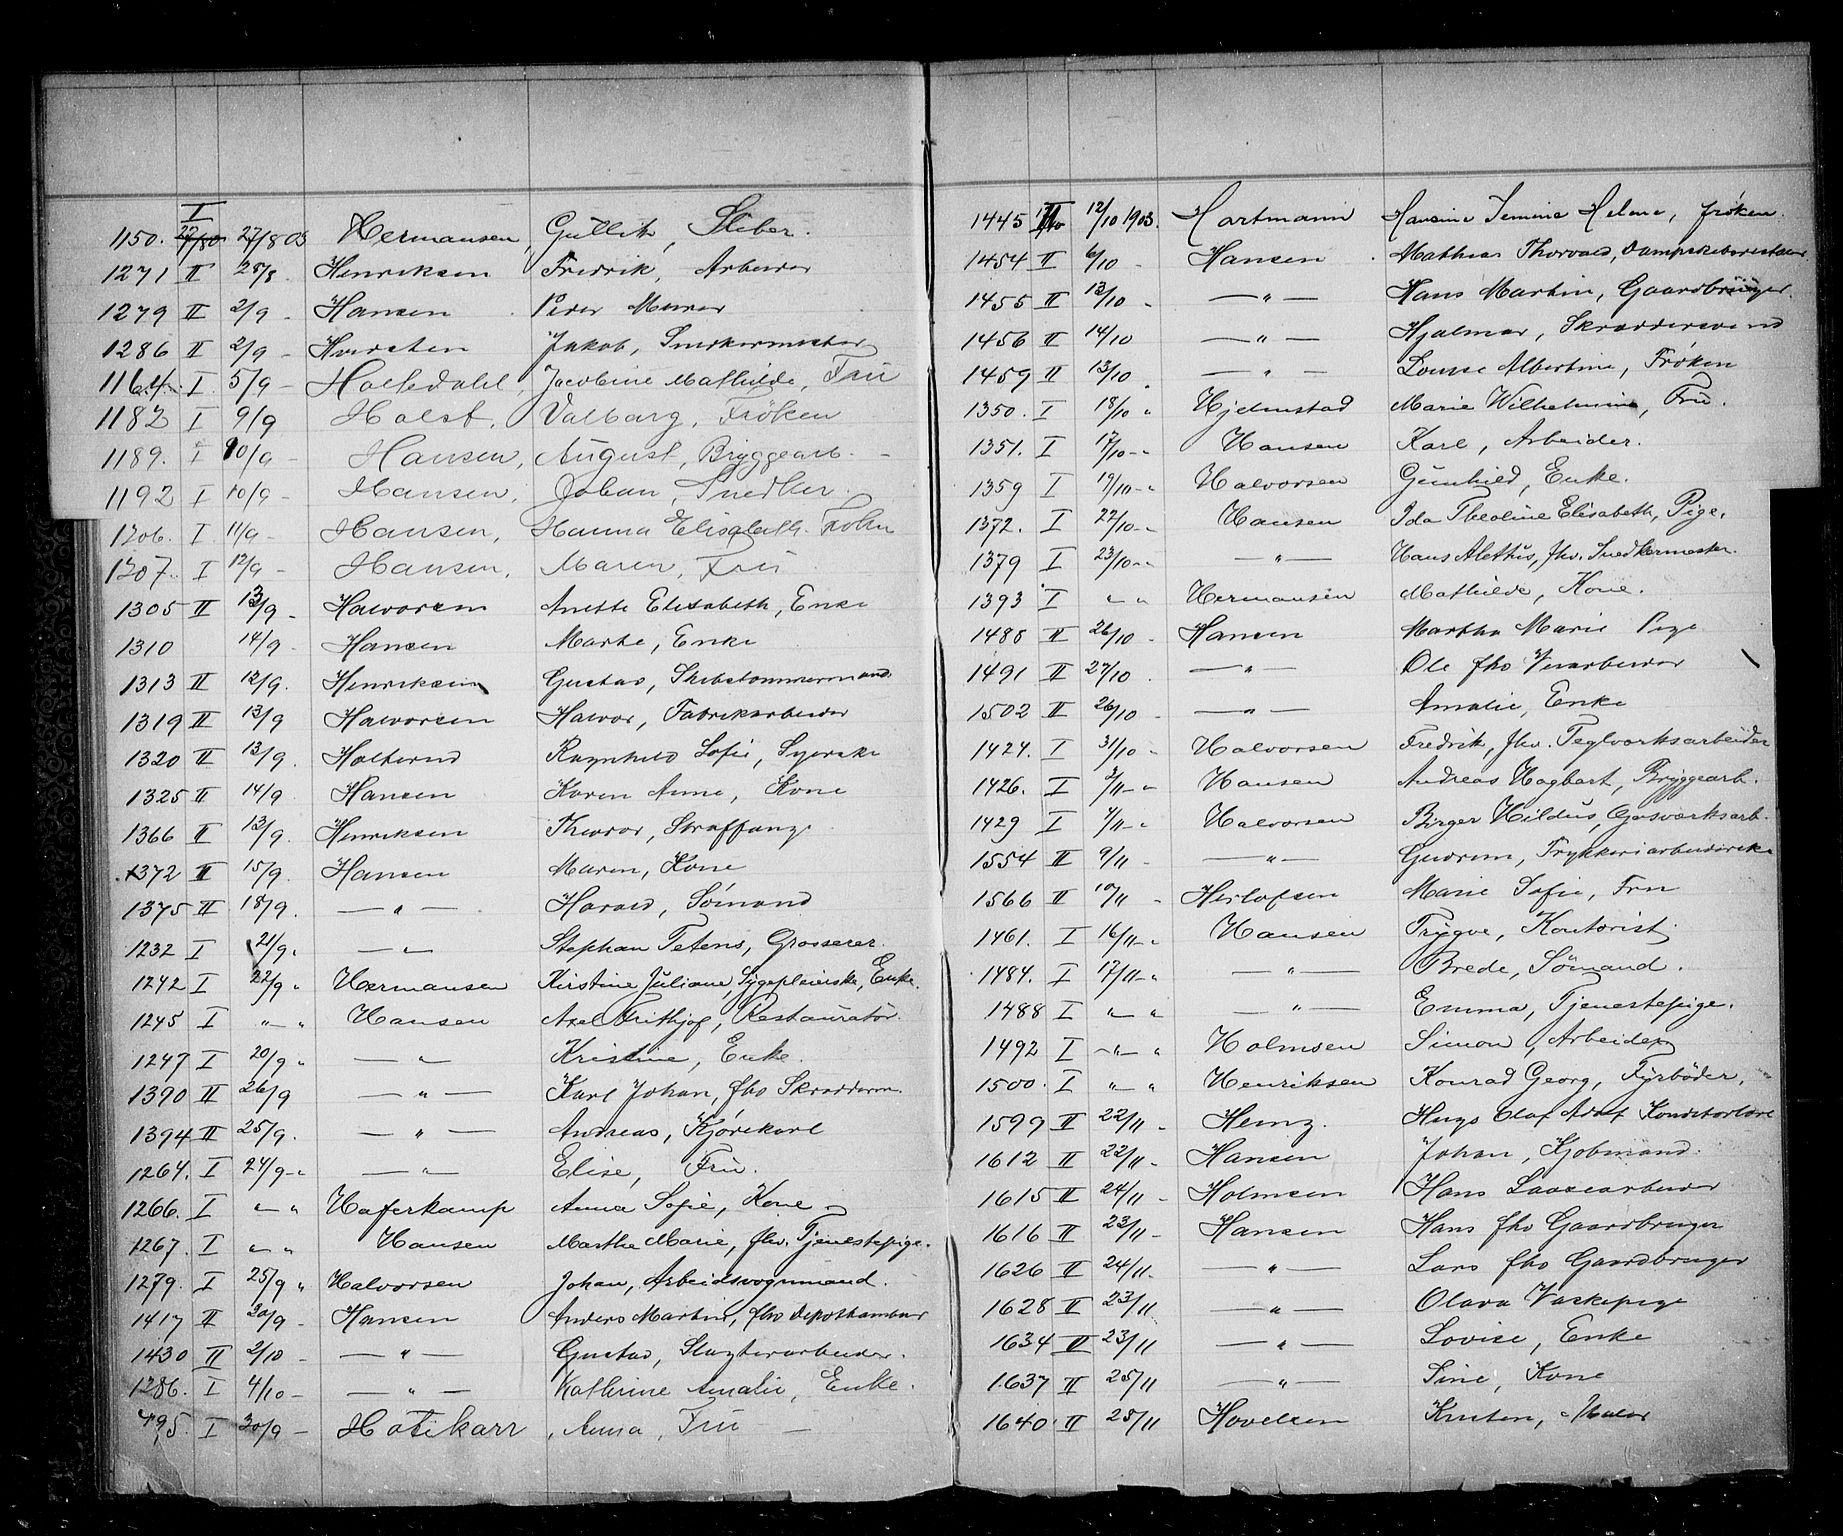 1150. I 27/8 03 Hermansen, Gullik, Sliber.
1271 II 28/8 Henriksen Fredrik, Arbeider
1279 II 2/9 - Hansen Peder Murer
1286 II 2/9 - Jakob, Snekkermester
1164. I 5/9 - Holtedahl, Jacobine Mathilde, Fru
1182 I 9/9 Holst, Valborg, Fröken
1189. I 10/9 - Hansen, August, Bryggearb.
1192 I 10/9 - Hansen, Johan, Snedker.
1206. I 11/9 - Hansen, Hanna Elisabeth.
1207. I 12/9 - Hansen, Maren, Fru
1305 II 13/9 - Halvorsen Anette Elisabeth, Enke
1310 14/9 - Hansen Marte, Enke
1313 II 12/9. Henriksen Gustav, Skibstømmermand
1319 II 13/9 Halvorsen Halvor, Fabrikarbeider
1320 II 13/9. Ragnhild Sofie, Syerske
1325 II 14/9 Hansen Karen Anne, Kone
1366 II 13/9. Henriksen Theodor, Straffange
1372 II 15/9. Hansen Maren, Kone
1375 II 18/9. — " — Harald, Sømand
1232 I 21/9 " — " Stephan Tetens, Grosserer.
1242 I 22/9 " Hermansen Kirstine Juliane, Sygepleierske, Enke.
1245 I " - " Hansen Axel Frithjof, Restauratør.
1247 I 20/9 " — " Kristine, Enke.
1390 II 26/9 — " — Karl Johan, fhv Skrædderm.
1394 II 25/9. — " — Andreas, Kjørekarl
1264. I 24/9 - " — " — Elise, Fru.
1266. I " - " Haferkamp Anna Sofie, Kone
1267. I " - " Hansen Marthe Marie, fhv. Tjenestepige.
1279. I 25/9 " Halvorsen Johan, Arbeidsvognmand.
1417 II 20/9 - Hansen Anders Martin, fhv
1430 II 2/10 - — " — Gustav, Slagteriarbeider.
1286. I 4/10 - — " — Kathrine Amalie, Enke.
I 30/9 - Hotikarr, Anna, Fru —
1445 II 12/10 1903. Hartmann Helene, frøken.
1454 II 6/10 - Hansen Mathias Thorvald,
1455 II 13/10 " — " — Hans Martin, Gaardbruger.
1456 II 14/10 — " — Hjalmar, Skræddersvend
1459 II 13/10 — " — Louise Albertine, Frøken
1350. I 18/10 " Hjelmstad Marie Wilhelmine, Fru.
1351. I 17/10 - " Hansen Karl, Arbeider.
1359 I 19/10 - " Halvorsen Gunhild, Enke.
1372. I 22/10 - " Hansen Ida Theoline Elisabeth, Pige.
1379 I 23/10 - " — " — Hans Alettus, fhv. Snedkermester.
1393 I " " Hermansen Mathilde, Kone.
1488 II 26/10 - Hansen Martha Marie Pige
1491 II 27/10 — " — Ole fhv
1502 II 26/10 - — " — Amalie, Enke
1424. I 31/10 " Halvorsen Fredrik, fhv. Teglværksarbeider
1426. I 3/11 - " Hansen Andreas Hagbart, Bryggearb.
1429 I 4/11 - " Halvorsen Birger Hildus, Gasværksarb.
1554 II 9/11 - — " — Gudrun, Trykkeriarbeiderske
1566 II 10/11 - Herlofsen Marie Sofie, Fru
1461. I 16/11 - " Hansen Trygve, Kontorist.
1484. I 17/11 - " — " — Brede, Sömand.
1488 I " " — " — Emma, Tjenestepige.
1492 I - " - " Holmsen Simon, Arbeider
1500. I " - " Henriksen Konrad Georg, Fyrböder.
1599 II 22/11 - Heinz. Hugo Olaf Adolf
1612 II 22/11 - Hansen Johan, Kjøbmand.
1615 II 24/11 - Holmsen Hans
1616 II 23/11 - Hansen Hans fhv Gaardbruger
1626 II 24/11 - — " — Lars fhv Gaardbruger
1628 II 23/11 — " — Olava Vaskepige
1634 II 23/11 — " — Lovise, Enke
1637 II 25/11 — " — Sine, Kone
1640 II 25/11 Hovelsen Maler